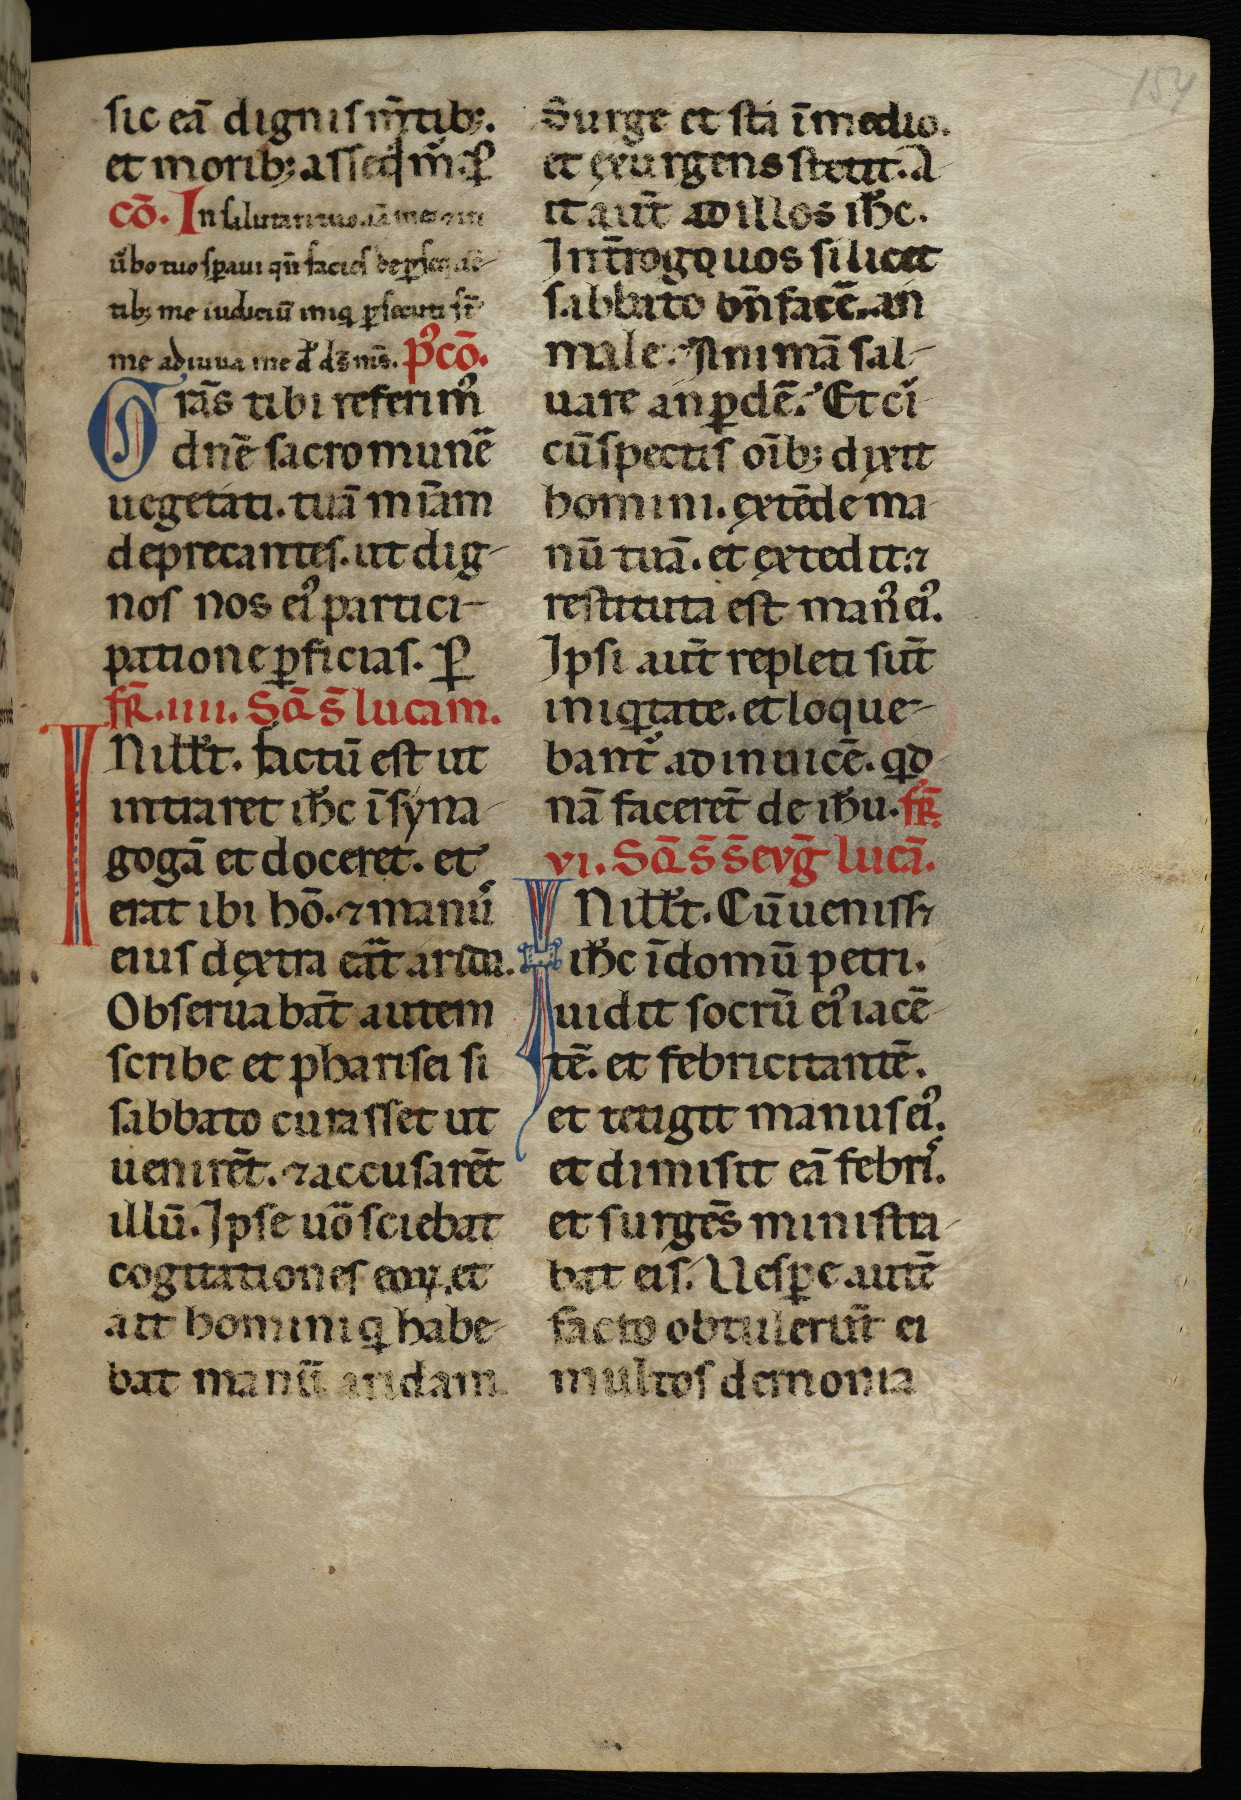 154
sic eā dignis m̄tib;.
et morib; asseq̄m̄. P̱
cō. In salutari tuo aīa mea et in
ūbo tuo sp̱aui qn̄ facies de p̱seq̄
tib; me iudiciū iniq̇ p̱secuti st̄
me adiuua me d̄ ds̄ ms̄. P᾽cō.
Grās tibi referim᾽
dn̄e sacro munē
uegetati. tuā mīam
deprecantes. ut dig-
nos nos ei᾽ partici-
patione p̱ficias. P̱
fr̄. iiii. Sc̄d s̄ lucam.
IN ill̄ t̄. factū est ut
intraret ih̄c ī syna-
gogā et doceret. et
erat ibi hō. ⁊ man᾽
eius dextra erāt arida.
Obseruabāt autem
scribe et pharisei si
sabbato curasset ut
uenirēt. ⁊ accusarēt
illū. Ipse uō sciebat
cogitationes eoꝝ. et
ait homini q̇ habe-
bat manū aridam
Surge et sta ī medio.
et exurgens stetit. A
it aūt ad illos ih̄c.
Int̄rogo uos si licet
sabbato bn̄ facē. an
male. Animā sal-
uare an p̱dē. Et cī
cūspectis oīb; dixit
homini. extēde ma-
nū tuā. et extēdit. ⁊
restituta est man᾽ ei᾽.
Ipsi aūt repleti sūt
iniq̇tate. et loque-
bant᾽ ad inuicē. qd̄
nā facerēt de ih̄u. fr̄.
vi. Sc̄d s̄ s̄ evḡ lucā.
IN ill̄ t̄. Cū uenisset
ih̄c ī domū petri.
uidit socrū ei᾽ iacē-
tē. et febricitantē.
et tetigit manus ei᾽.
et dimisit eā febri᾽.
et surgēs ministra-
bat eis. Uesp̱e autē
facto obtulerūt ei
multos demonia